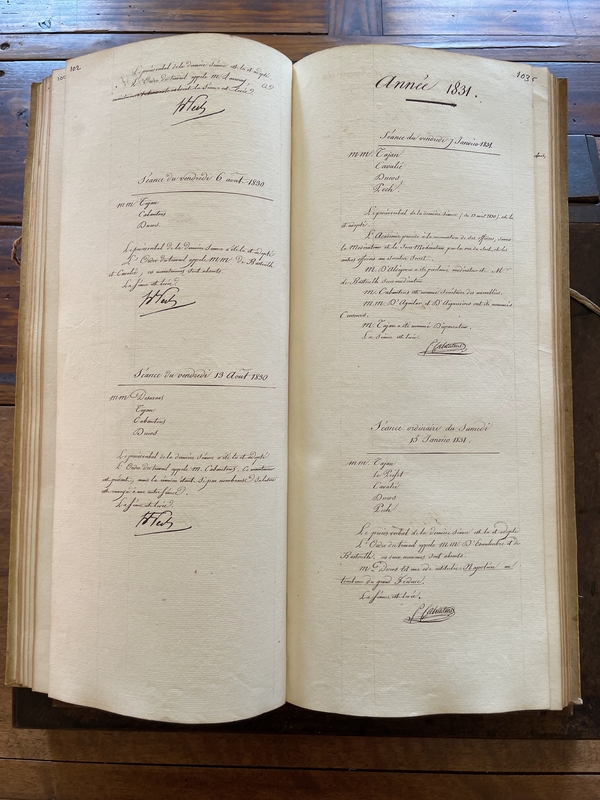 102
Le procès verbal de la dernière séance est lu et adopté.
L'Ordre du travail appelle M.
la séance est levée.
Hte Pech
Séance du vendredi 6 août 1830
mm Tajan
Cabantous
Ducos.
Le procès verbal de la dernière séance a été lu et adopté
L'Ordre du travail appelle MM. de Bastoulh
et Cavalié, ces mainteneurs sont absents.
La séance est levée.
Hte Pech
Séance du vendredi 13 Août 1830
mm Desazars
Tajan
Cabantous
Ducos
Le procès verbal de la dernière séance a été lu et adopté
L'Ordre du travail appelle M. Cabantous. Ce mainteneur
est présent, mais la réunion étant si peu nombreuse
est renvoyée à une autre séance.
La séance est levée.
Hte Pech
103
Année 1831.
Séance du vendredi 7 Janvier 1831.
mm. Tajan
Cavalié
Ducos
Pech.
Le procès verbal de la dernière séance (du 13 août 1830) est lu
et adopté.
L'Académie procède à la nomination de ses officiers, savoir
le Modérateur et le Sous Modérateur par la voie du sort, et les
autres officiers au scrutin secret.
M. D'Aldéguier a été proclamé modérateur et Mr
de Bastoulh sous modérateur
M. Cabantous est nommé Secrétaire des assemblées.
M.M. D'Aguilar et D'Ayguesvives ont été nommés
Censeurs.
M. Tajan a été nommé Dispensateur.
La Séance est levée.
F. Cabantous
Séance ordinaire du Samedi
15 Janvier 1831.
mm. Tajan
Le Préfet
Cavalié
Ducos
Pech.
Le procès verbal de la dernière Séance est lu et adopté
L'Ordre du travail appelle MM. D'Escouloubre et de
Bastoulh, ces deux messieurs sont absents.
Mr. Ducos lit une ode intitulée Napoléon au
tombeau du grand Fréderic.
La Séance est levée.
F. Cabantous